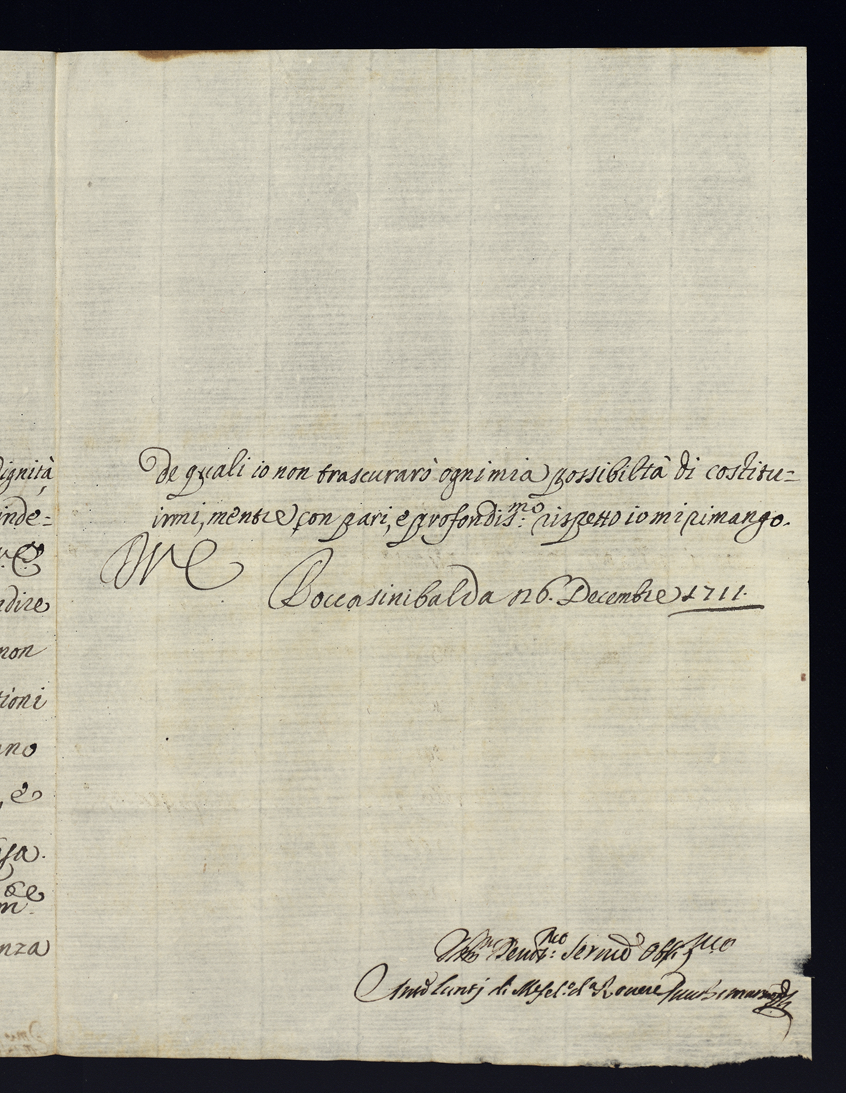 dignità
inde=
dire
non
tioni
ano
, e
sa.
nza
De quali io non trascurarò ogni mia possibiltà di costitu=
irmi, mentre con pari, e profondis.mo rispetto io mi rimango.
Roccasinibalda 26. Decembre 1711.
Seruid.
di
Rouere